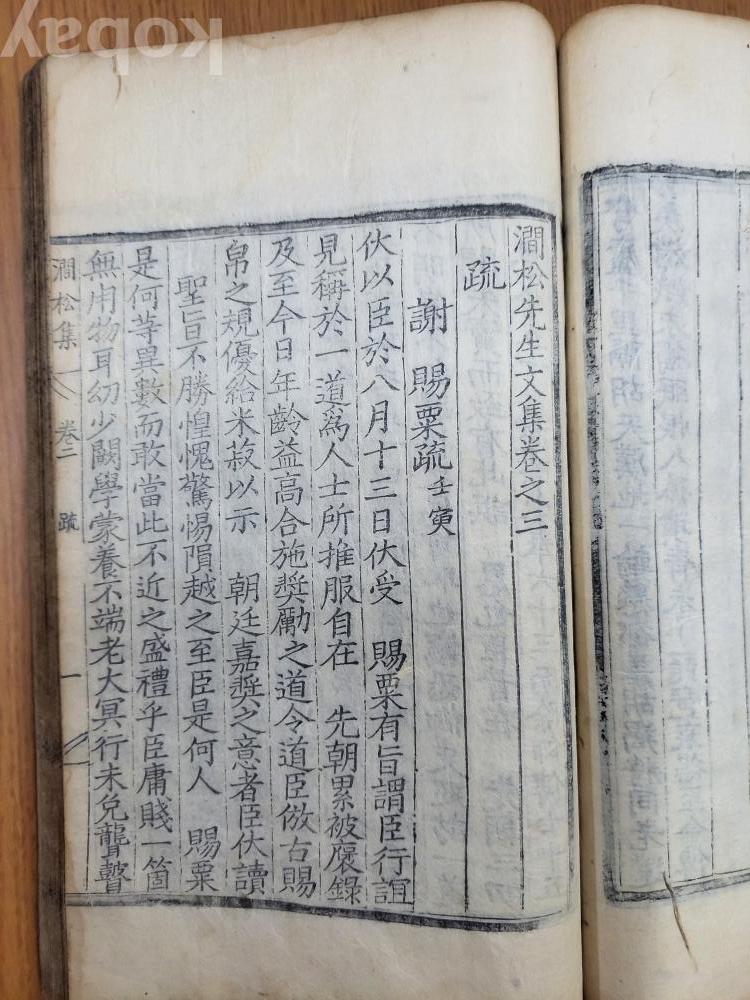 kobay
澗松先生文集卷之三
疏
謝 賜粟疏 壬寅
伏以臣於八月十三日伏受 賜粟有旨謂臣行誼
見稱於一道爲人士所推服自在 先朝累被褒錄
及至今日年齡益高合施奬勵之道令道臣倣古賜
帛之規優給米菽以示 朝廷嘉奬之意者臣伏讀
聖旨不勝惶愧驚惕隕越之至臣是何人 賜粟
是何等異數而敢當此不近之盛禮乎臣庸賤一箇
無用物耳幼少闕學蒙養不端老大冥行未免聾瞽
澗松集 卷二 疏 一